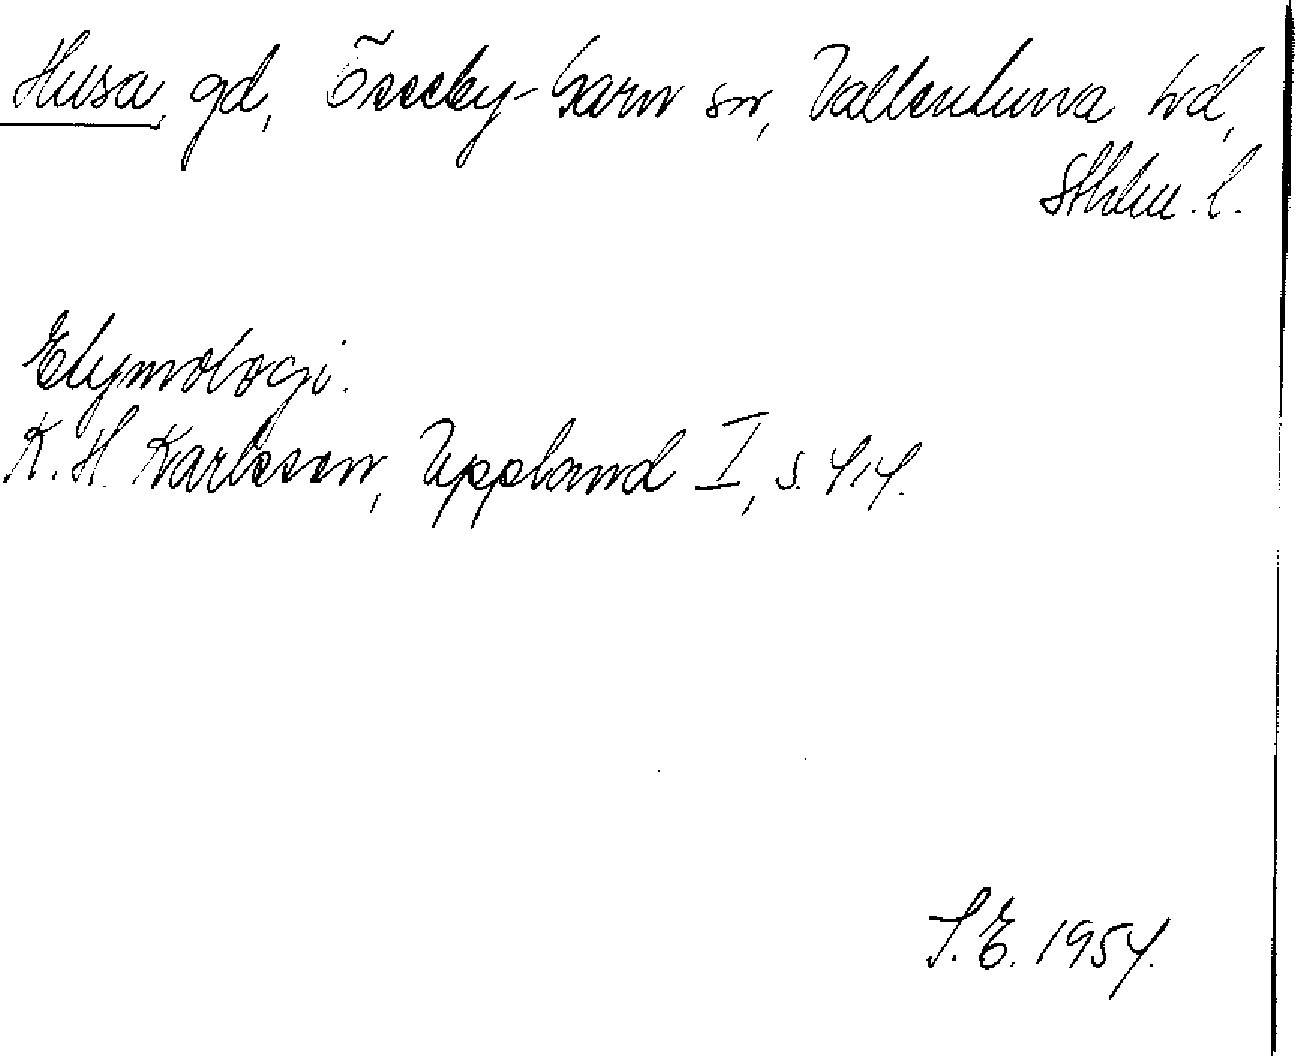 Husa, gd, Össeby-Garn sn, Vallentuna hd,
Sthlm. l.
Etymologi.
K. H. Karlsson, Uppland I, s. 414.
S. E. 1954.